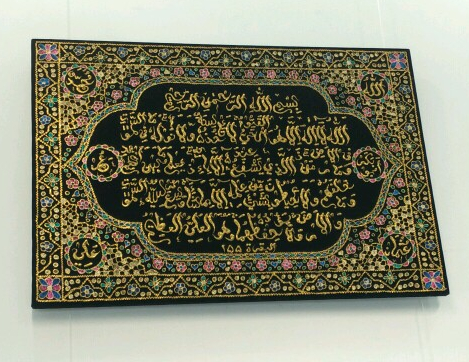 الله
بسم الله الرحمن الرحيم
الله لا اله الا هو الحي القيوم لا تأخذه سنة ولا نوم له ما في السموات
وما في الارض من ذا الذي يشفع عنده الا باذنه يعلم ما بين ايديهم
وما خلفهم ولا يحيطون بشيء من علمه الا بما شاء وسع كرسيه السموات
والارض ولا يؤده حفظهما وهو العلي العظيم
البقرة